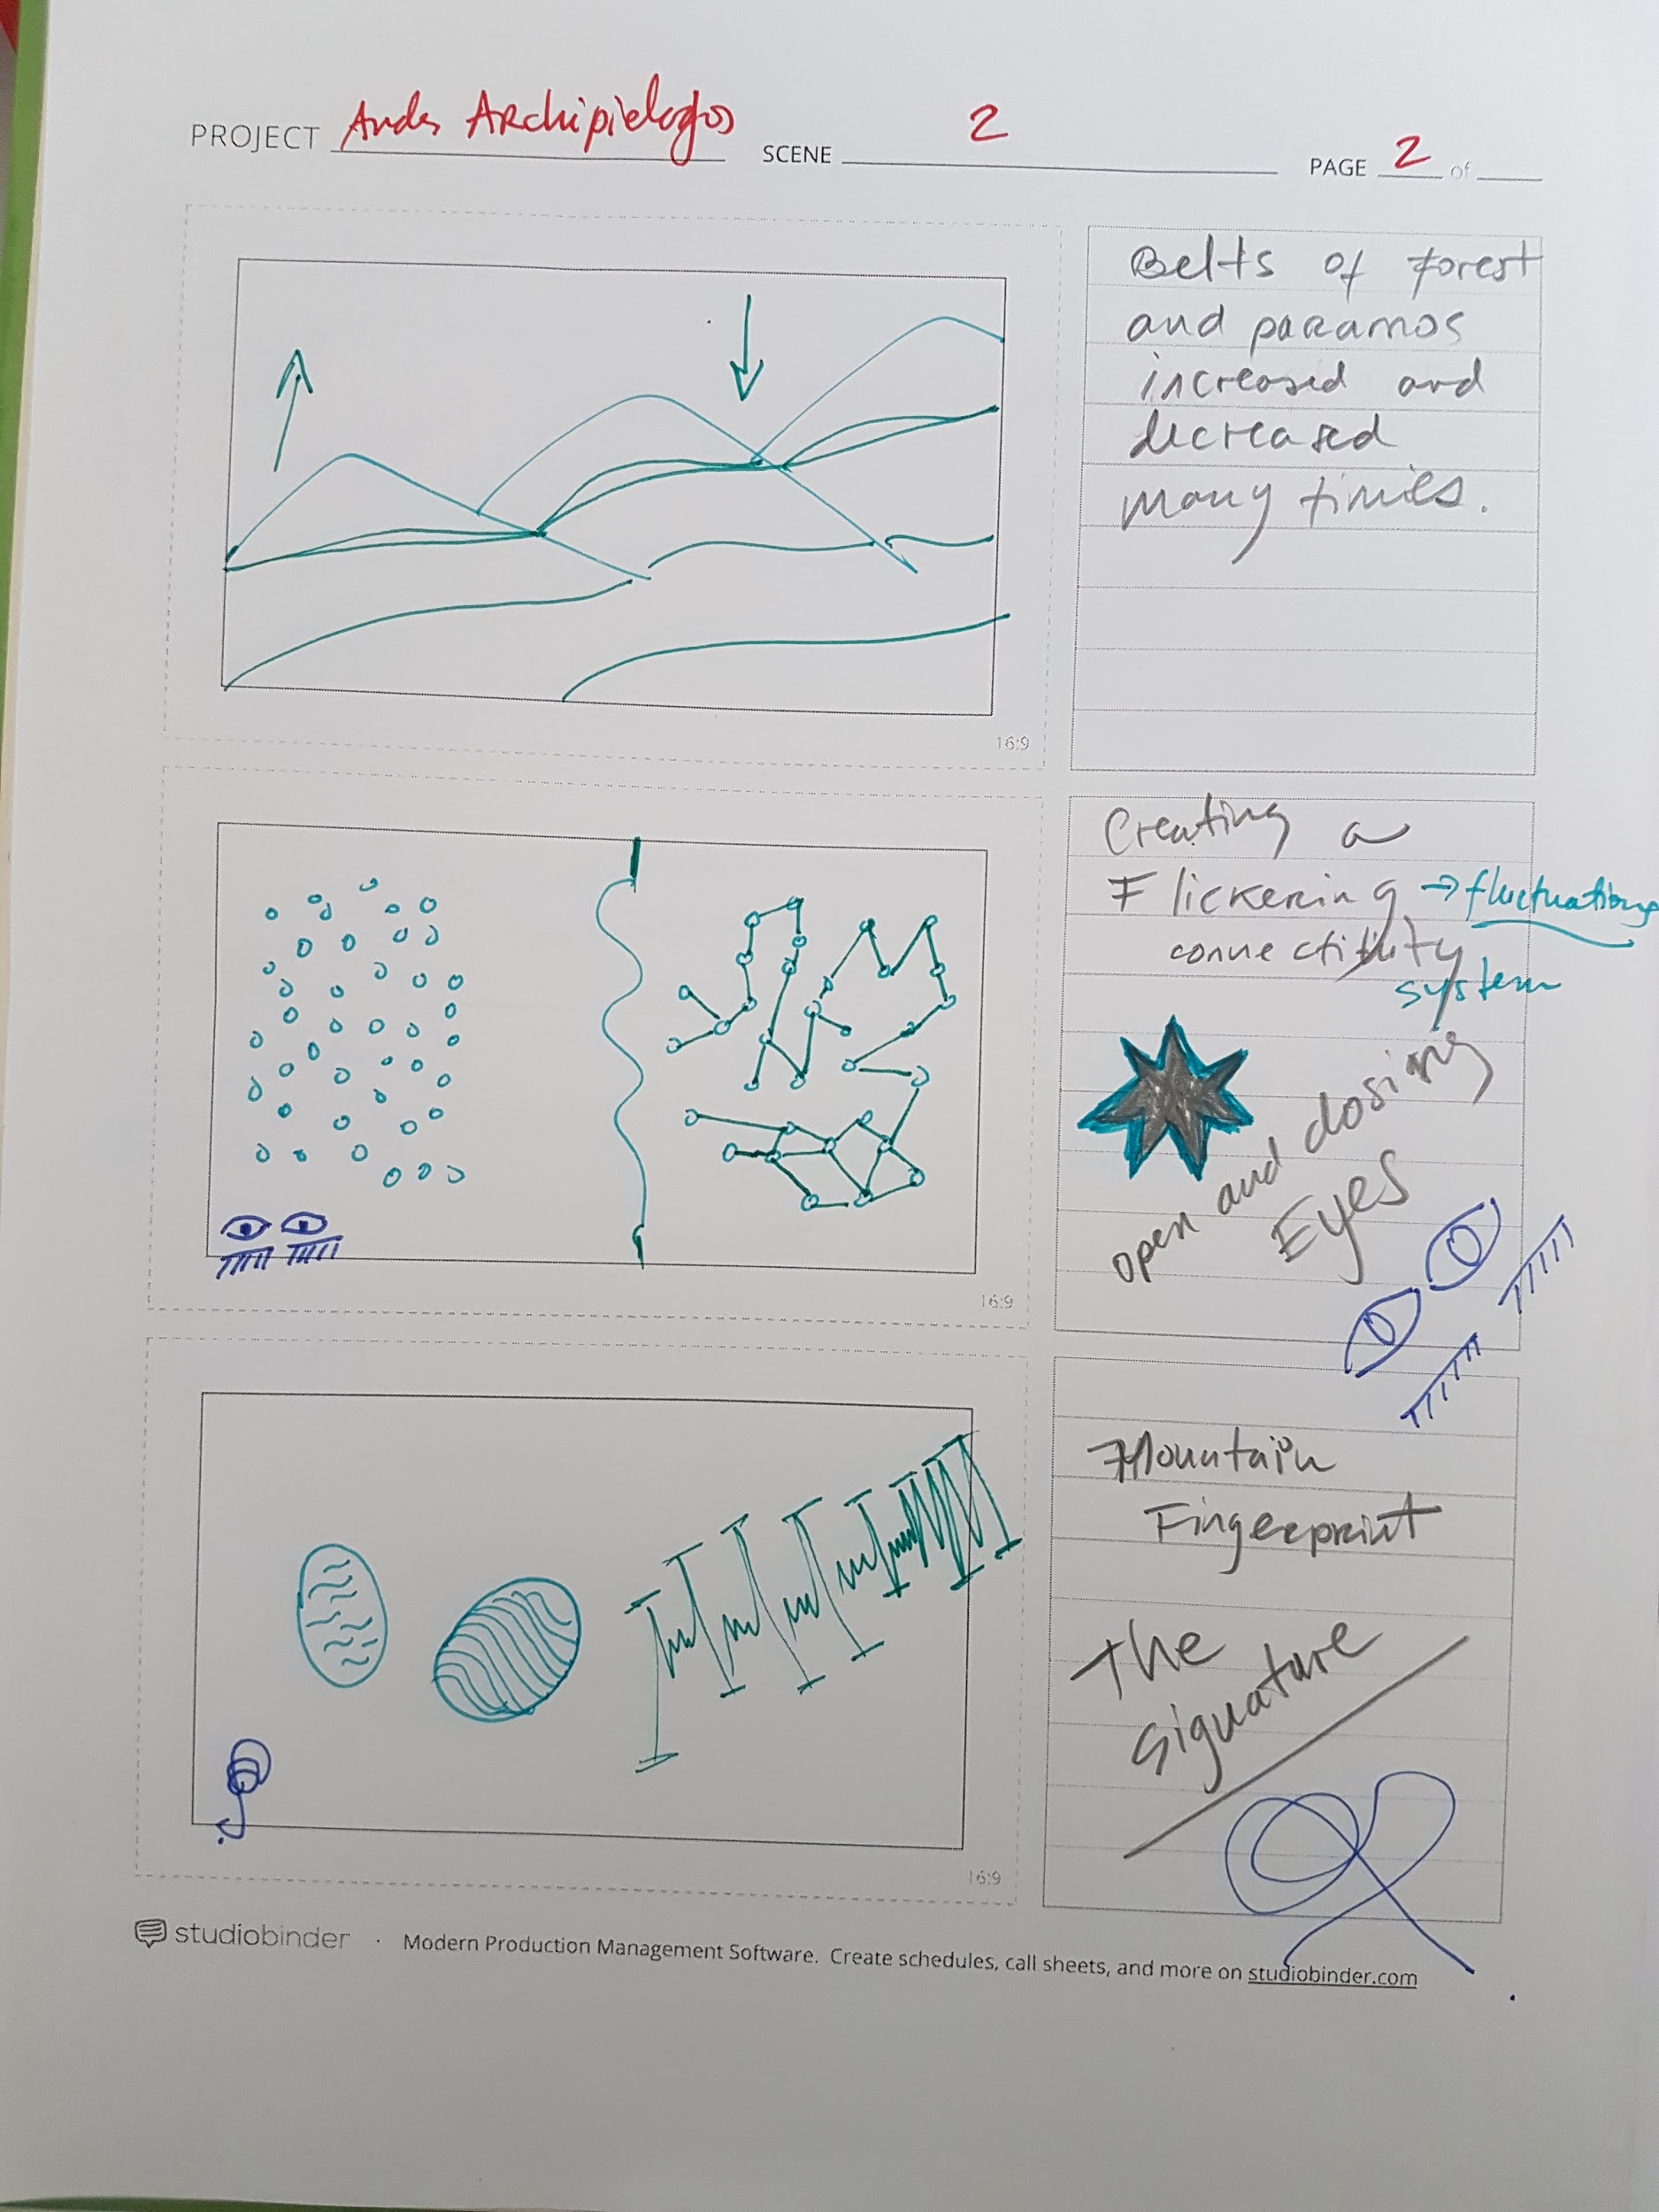 PROJECT Andes Archipielagos SCENE 2 PAGE 2 of
Belts of forest
and paramos
increased and
decreased
many times.
16:9
Creating a
Flickering → fluctuations
connectivity
system
open and closing
Eyes
16:9
Mountain
Fingerprint
The
signature
16:9
studiobinder · Modern Production Management Software. Create schedules, call sheets, and more on studiobinder.com